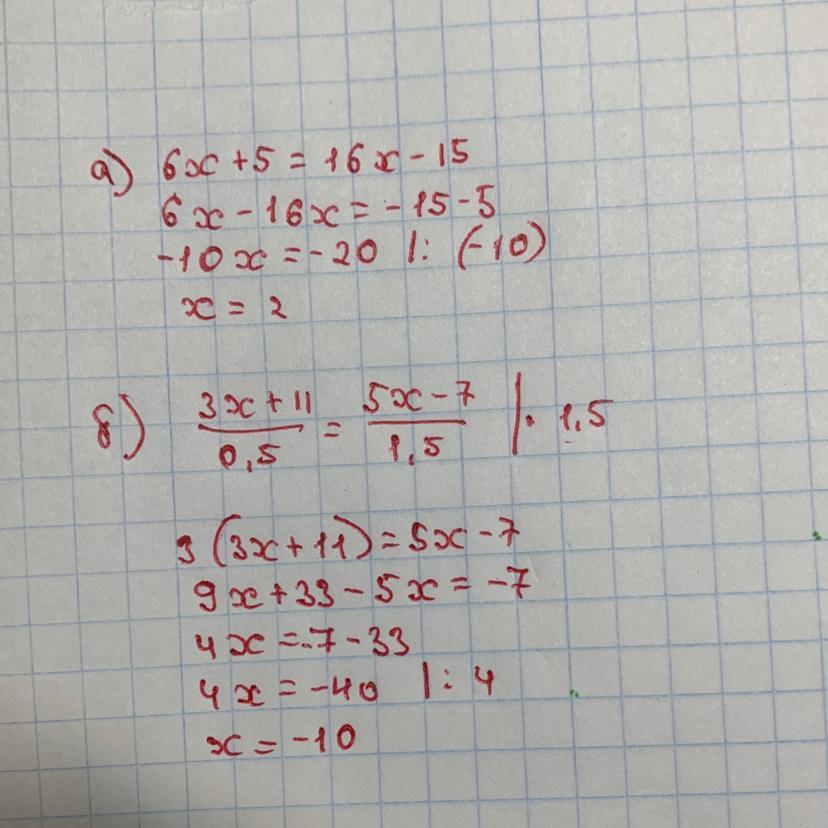 а) 6x + 5 = 16x - 15
6x - 16x = -15 - 5
-10x = -20 |: (-10)
x = 2
б) (3x + 11)/0,5 = (5x - 7)/1,5 | · 1,5
3(3x + 11) = 5x - 7
9x + 33 - 5x = -7
4x = -7 - 33
4x = -40 |: 4
x = -10